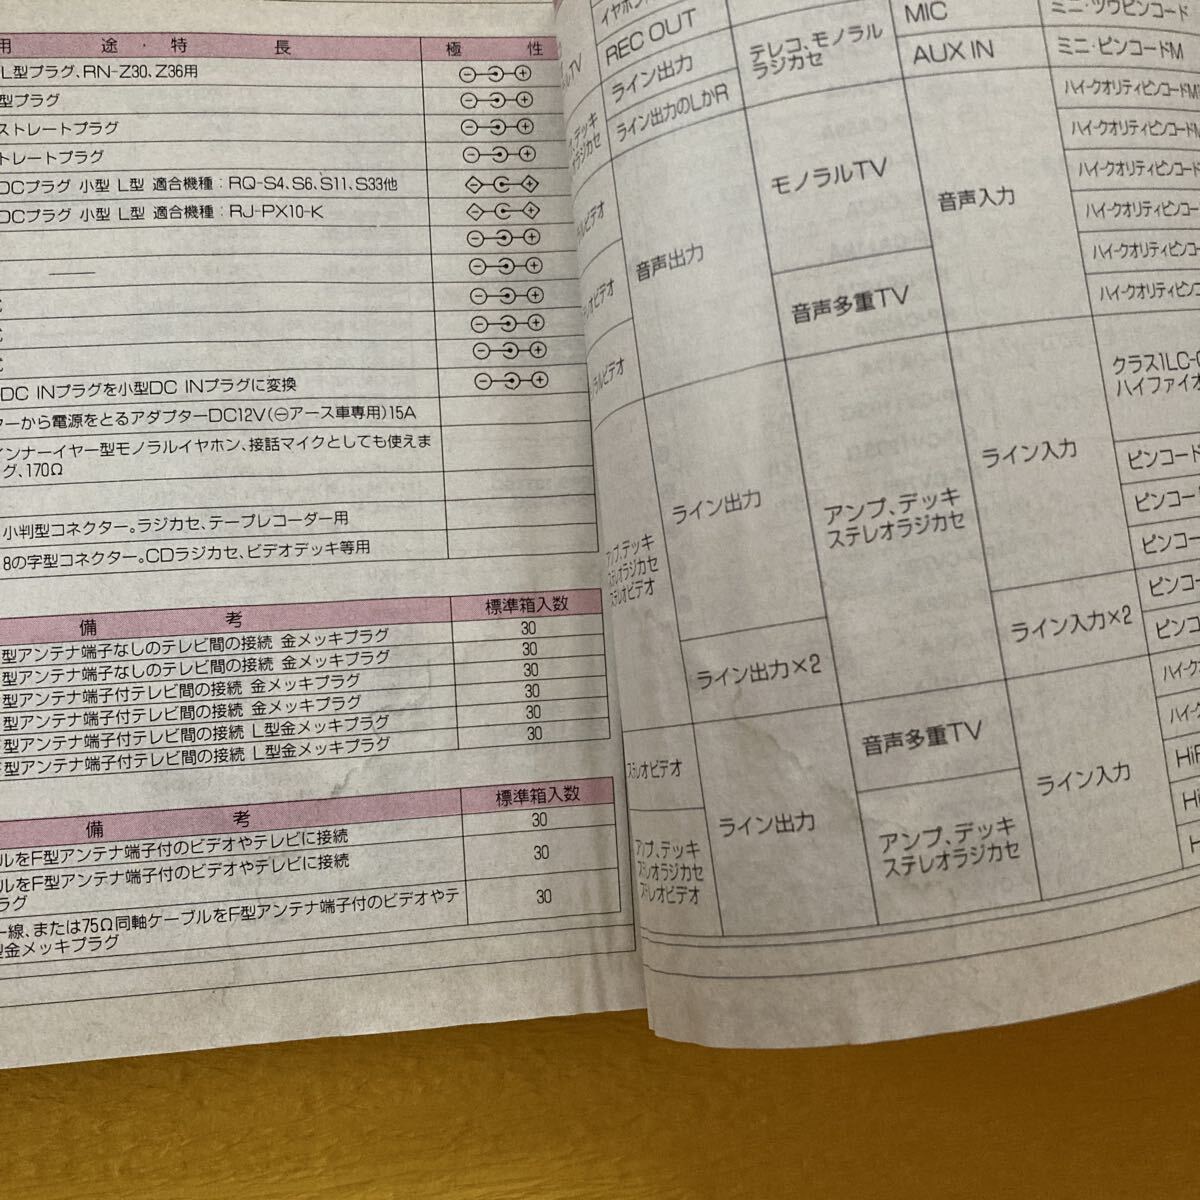 用途・特長 極性
L型プラグ、RN-Z30、Z36用
型プラグ
ストレートプラグ
トレートプラグ
DCプラグ 小型 L型 適合機種：RQ-S4、S6、S11、S33他
DCプラグ 小型 L型 適合機種：RJ-PX10-K
DC INプラグを小型DC INプラグに変換
ターから電源をとるアダプターDC12V(⊖アース車専用)15A
インナーイヤー型モノラルイヤホン、接話マイクとしても使えま
グ、170Ω
小判型コネクター。ラジカセ、テープレコーダー用
8の字型コネクター。CDラジカセ、ビデオデッキ等用
備考 標準箱入数
型アンテナ端子なしのテレビ間の接続 金メッキプラグ 30
型アンテナ端子なしのテレビ間の接続 金メッキプラグ 30
型アンテナ端子付テレビ間の接続 金メッキプラグ 30
型アンテナ端子付テレビ間の接続 金メッキプラグ 30
F型アンテナ端子付テレビ間の接続 L型金メッキプラグ 30
F型アンテナ端子付テレビ間の接続 L型金メッキプラグ 30
備考 標準箱入数
ルをF型アンテナ端子付のビデオやテレビに接続 30
ルをF型アンテナ端子付のビデオやテレビに接続 30
ラグ
ー線、または75Ω同軸ケーブルをF型アンテナ端子付のビデオやテ 30
型金メッキプラグ
REC OUT
ライン出力
ライン出力のLかR
音声出力
ライン出力
ライン出力×2
ライン出力
TV
デッキ
ラジカセ
ビデオ
ビデオ
ビデオ
アンプ、デッキ
ステレオラジカセ
ステレオビデオ
ステレオビデオ
アンプ、デッキ
ステレオラジカセ
ステレオビデオ
テレコ、モノラル
ラジカセ
モノラルTV
音声多重TV
アンプ、デッキ
ステレオラジカセ
音声多重TV
アンプ、デッキ
ステレオラジカセ
MIC
AUX IN
音声入力
ライン入力
ライン入力×2
ライン入力
ミニ・ツウピンコード
ミニ・ピンコードM
ハイ・クオリティピンコードM
ハイ・クオリティピンコードM
ハイ・クオリティピンコード
ハイ・クオリティピンコー
ハイ・クオリティピンコー
ハイ・クオリティピンコ
クラス1LC-
ハイファイオ
ピンコード
ピンコー
ピンコー
ピンコー
ピンコ
ハイ・クオ
ハイ・ク
HiF
Hi
H